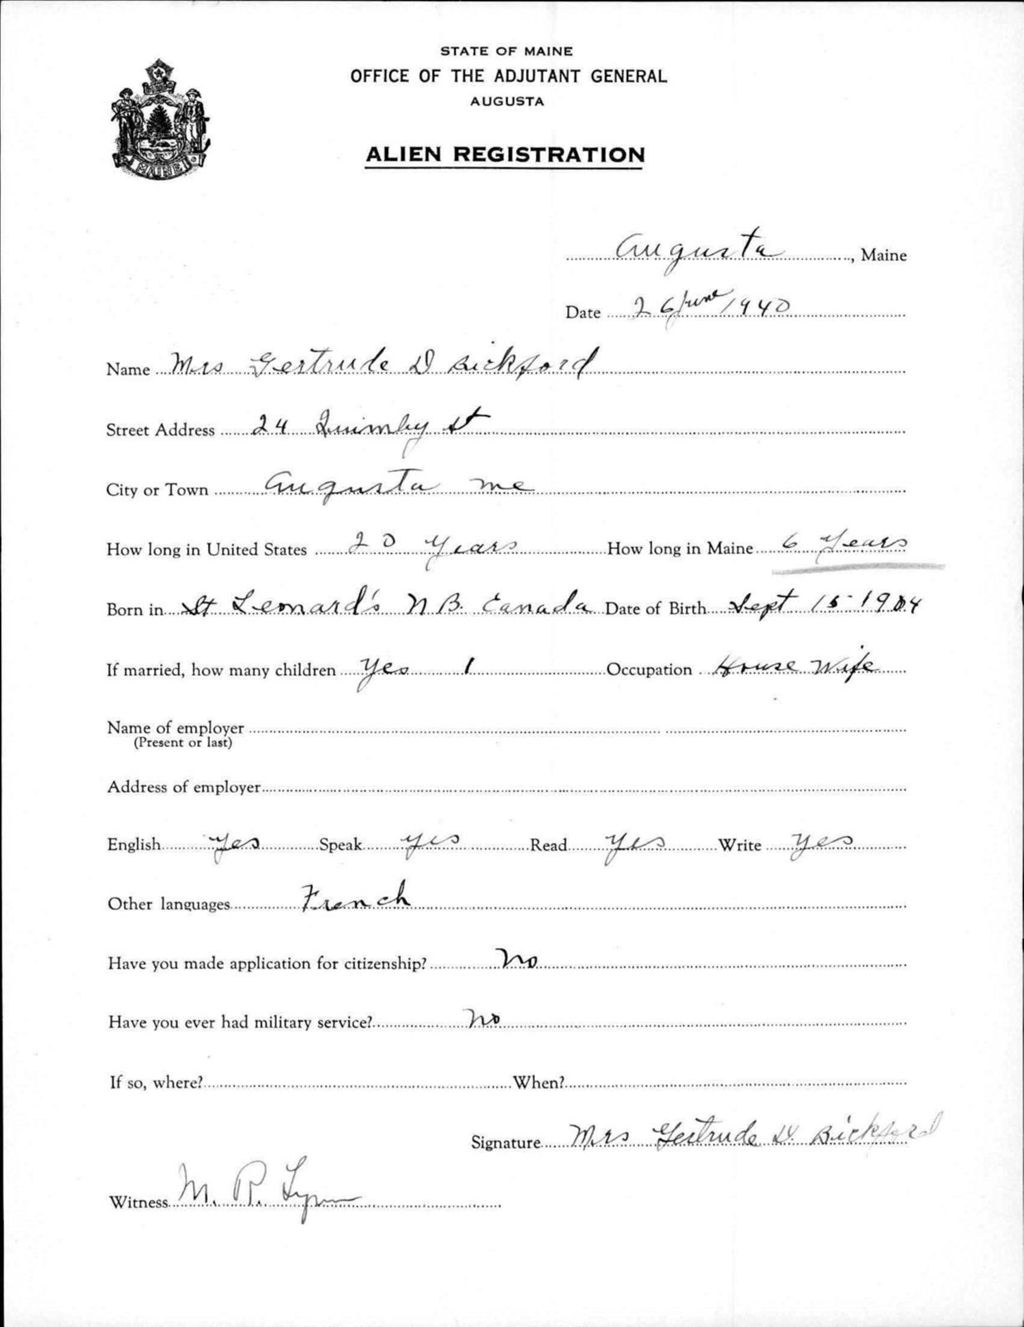 STATE OF MAINE
OFFICE OF THE ADJUTANT GENERAL
AUGUSTA
ALIEN REGISTRATION
MAINE
Augusta, Maine
Date 26 June 1940
Name Mrs Gertrude D Bickford
Street Address 24 Quimby St
City or Town Augusta Me
How long in United States 20 Years How long in Maine 6 Years
Born in St Leonard's N B. Canada Date of Birth Sept 15 - 1904
If married, how many children Yes 1 Occupation House Wife
Name of employer
(Present or last)
Address of employer
English Yes Speak yes Read Yes Write Yes
Other languages French
Have you made application for citizenship? No
Have you ever had military service? No
If so, where? When?
Signature Mrs Gertrude D. Bickford
Witness M. R. Lynn